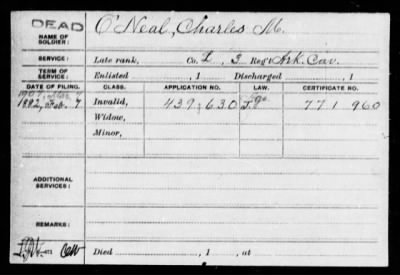 DEAD
NAME OF SOLDIER: O'Neal, Charles M.
SERVICE: Late rank, Co. L, 3 Reg't Ark. Cav.
TERM OF SERVICE: Enlisted , 1 Discharged , 1
DATE OF FILING. CLASS. APPLICATION NO. LAW. CERTIFICATE NO.
1882, Feb. 7 Invalid, 439,630 771960
Widow,
Minor,
ADDITIONAL SERVICES:
REMARKS:
Died , 1 , at